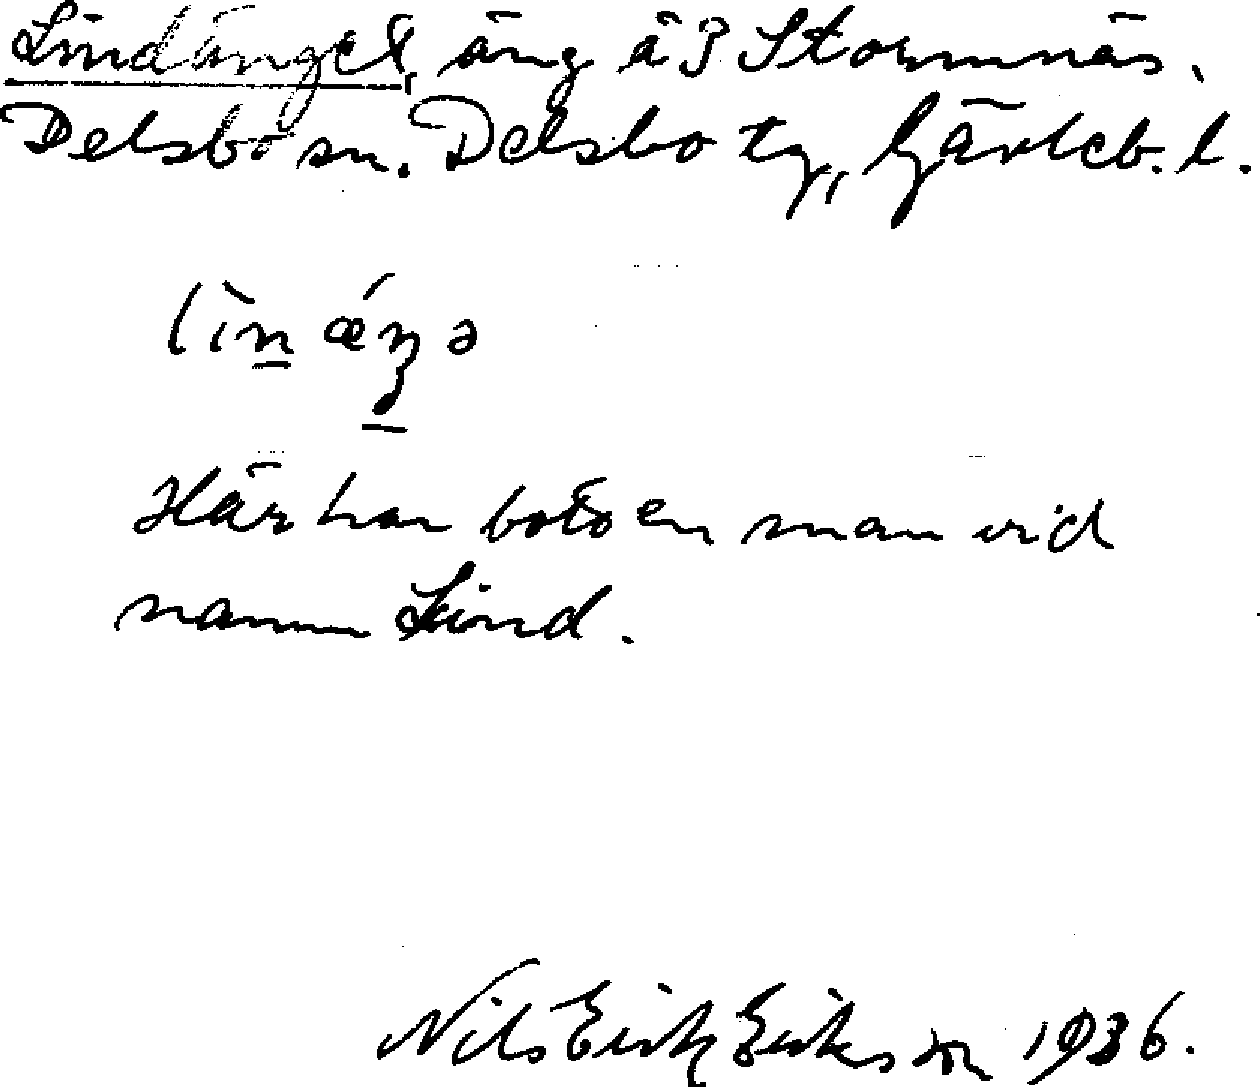 Lindänget, äng å 3 Stormnäs.
Delsbo sn. Delsbo tg, Gävleb. l.
Här har bott en man vid
namn Lind.
Nils Erik Eriksson 1936.